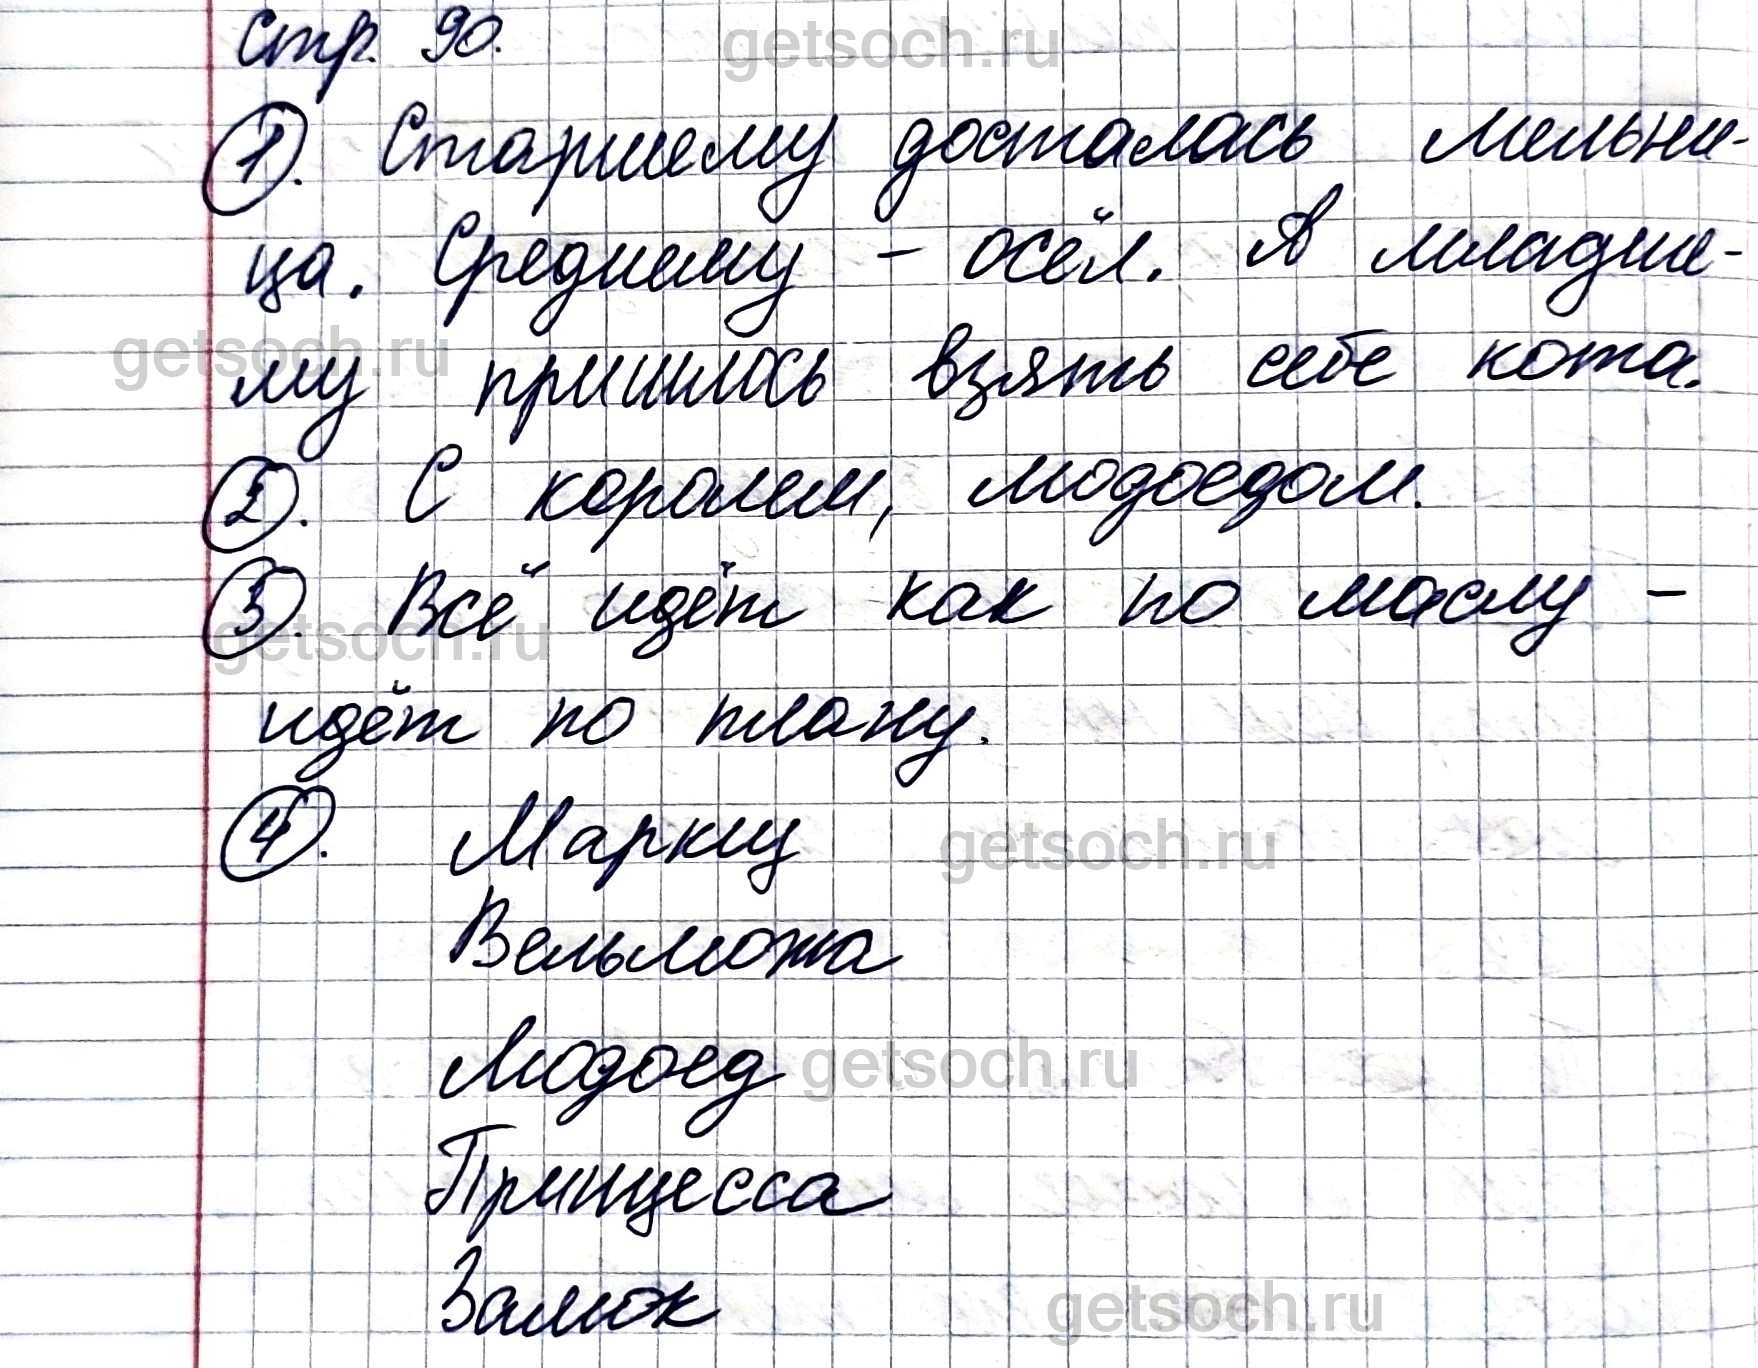 Стр. 90.
getsoch.ru
1. Старшему досталась мельни-
ца. Среднему - осёл. А младше-
getsoch.ru
му пришлось взять себе кота.
2. С королем, людоедом.
3. Всё идёт как по маслу -
getsoch.ru
идёт по плану.
4. Маркиз
getsoch.ru
Вельможа
Людоед
getsoch.ru
Принцесса
Замок
getsoch.ru